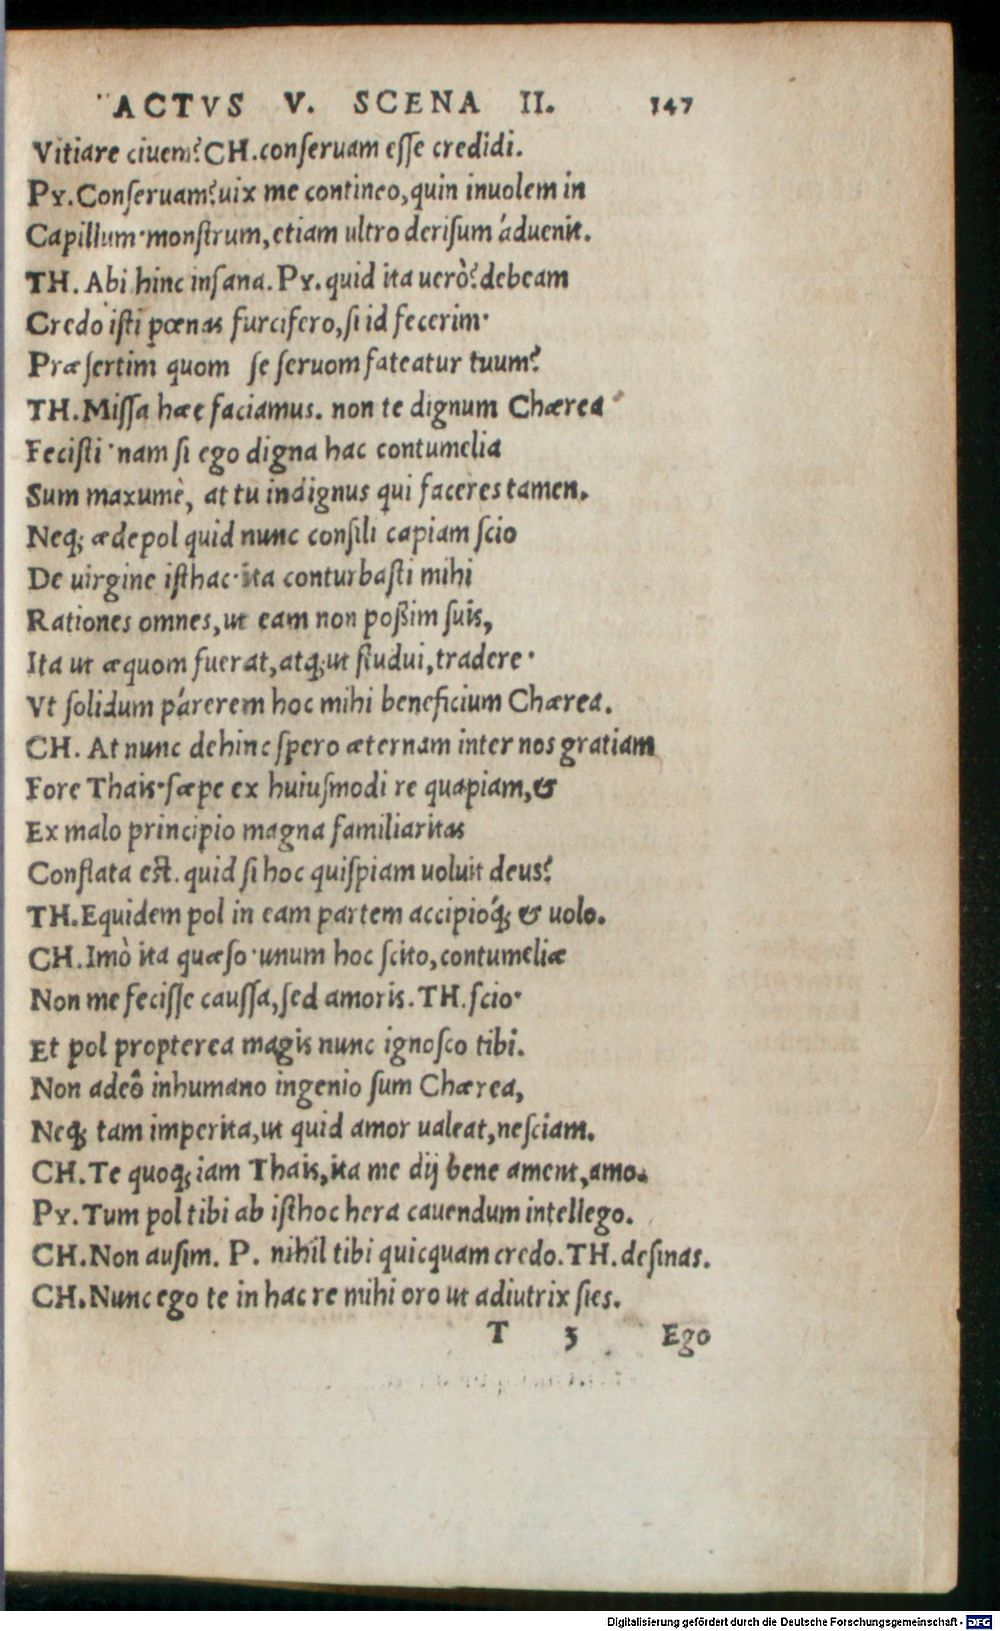 ACTVS V. SCENA II. 147
Vitiare ciuem? CH. conſeruam eſſe credidi.
PY. Conſeruam? uix me contineo, quin inuolem in
Capillum· monſtrum, etiam ultro deriſum áduenit.
TH. Abi hinc inſana. PY. quid ita uerò? debeam
Credo iſti pœnas furcifero, ſi id fecerim·
Præſertim quom ſe ſeruom fateatur tuum?
TH. Miſſa hæc faciamus. non te dignum Chærea
Feciſti· nam ſi ego digna hac contumelia
Sum maxumè, at tu indignus qui faceres tamen.
Neq; ædepol quid nunc conſili capiam ſcio
De uirgine iſthac· ita conturbaſti mihi
Rationes omnes, ut eam non poßim ſuis,
Ita ut æquom fuerat, atq; ut ſtudui, tradere·
Vt ſolidum párerem hoc mihi beneficium Chærea.
CH. At nunc dehinc ſpero æternam inter nos gratiam
Fore Thais· ſæpe ex huiuſmodi re quapiam, &
Ex malo principio magna familiaritas
Conflata eſt. quid ſi hoc quiſpiam uoluit deus?
TH. Equidem pol in eam partem accipioq́; & uolo.
CH. Imò ita quæſo· unum hoc ſcito, contumeliæ
Non me feciſſe cauſſa, ſed amoris. TH. ſcio·
Et pol propterea magis nunc ignoſco tibi.
Non adeô inhumano ingenio ſum Chærea,
Neq; tam imperita, ut quid amor ualeat, neſciam.
CH. Te quoq; iam Thais, ita me dij bene ament, amo.
PY. Tum pol tibi ab iſthoc hera cauendum intellego.
CH. Non auſim. P. nihil tibi quicquam credo. TH. deſinas.
CH. Nunc ego te in hac re mihi oro ut adiutrix ſies.
T 3 Ego
Digitalisierung gefördert durch die Deutsche Forschungsgemeinschaft - DFG